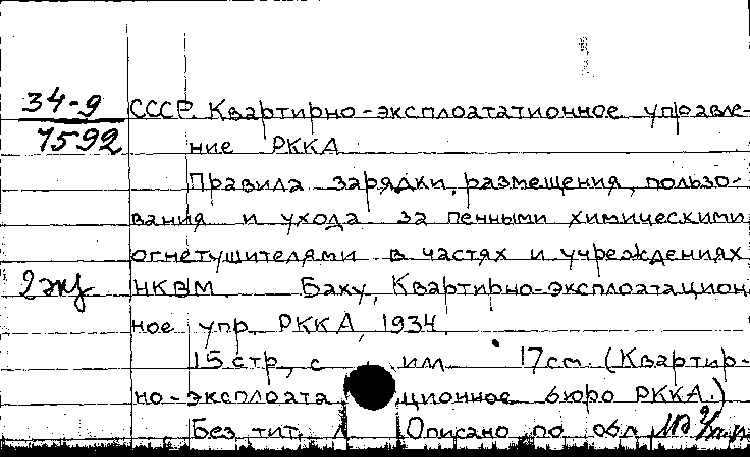 34-9
7592
2 экз
СССР. Квартирно-эксплоататионное управле-
ние РККА
Правила зарядки, размещения, пользо-
вания и ухода за пенными химическими
огнетушителями в частях и учреждениях
НКВМ. Баку, Квартирно-эксплоатацион
ное упр. РККА, 1934.
15 стр., с илл. 17 см. (Квартир-
но-эксплоата ционное бюро РККА.)
Без тит. л Описано по обл